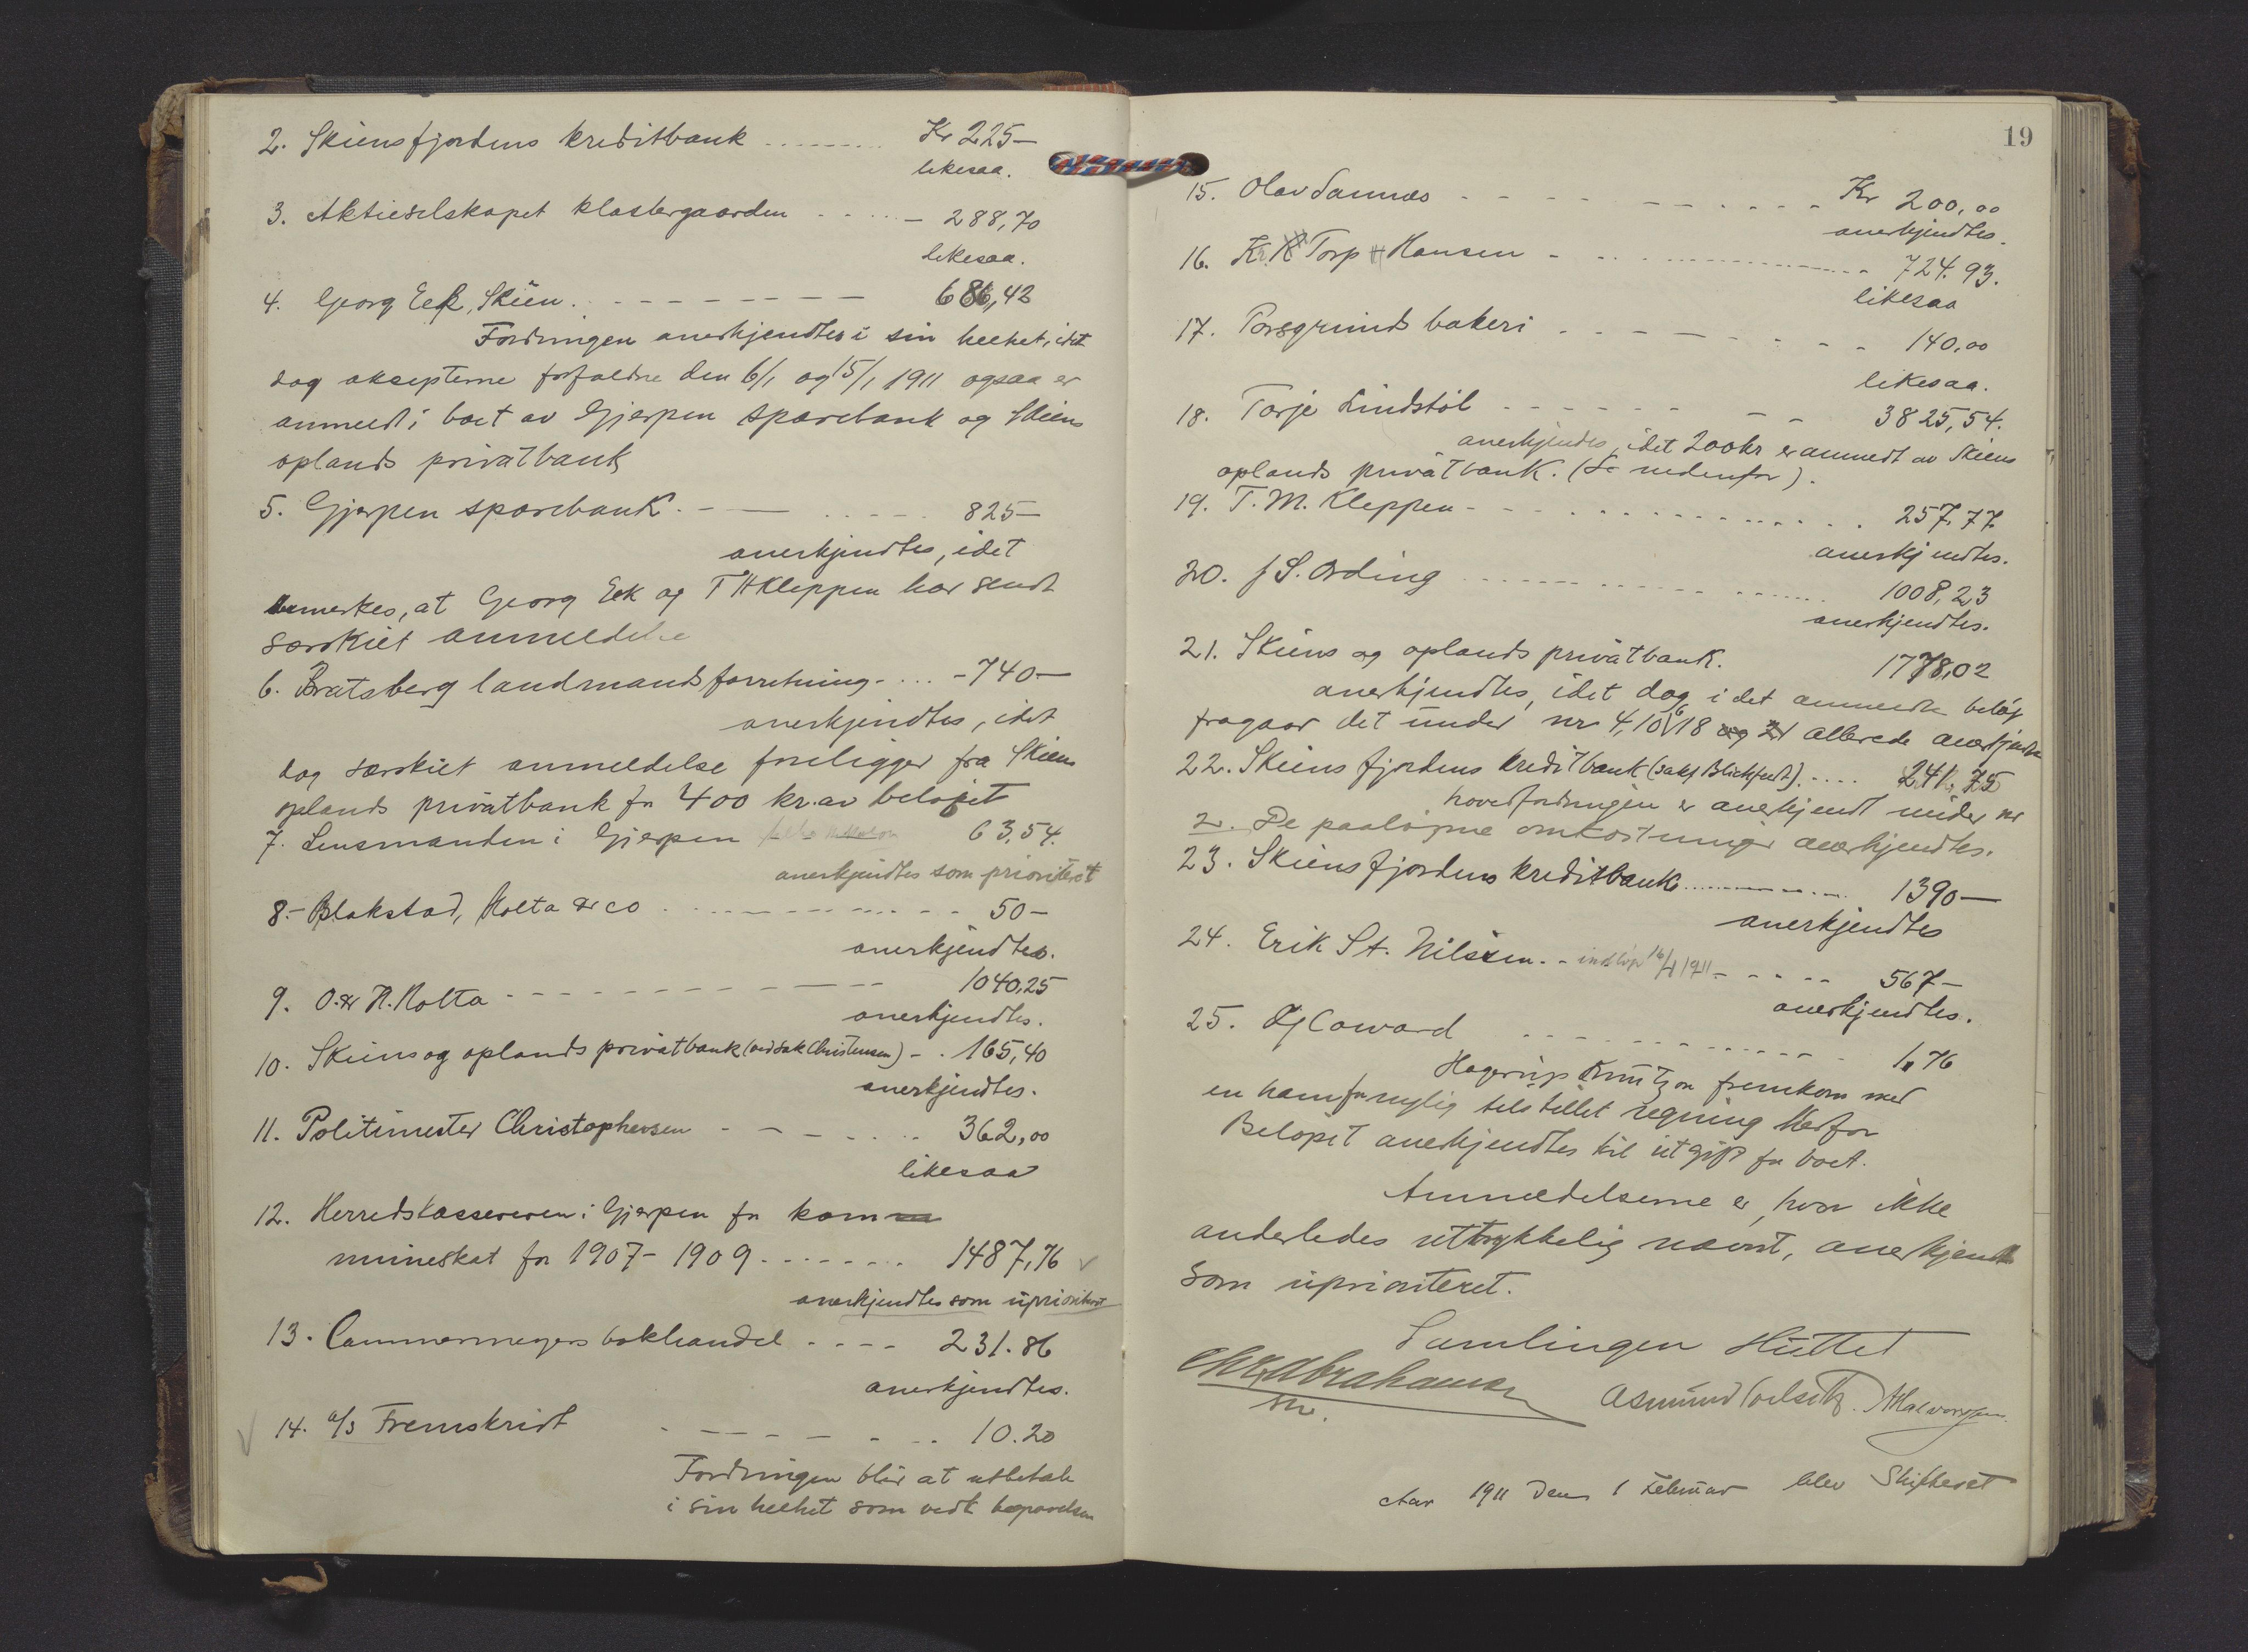 2. Skiensfjordens kreditbank ........ Kr 225—
likesaa.
3. Aktieselskapet klostergaarden - - - - 288,70
likesaa.
4. Georg Eek, Skien. - - - - - - - 686,42
Fordringen anerkjendtes i sin helhet, idet
dog aksepterne forfaldne den 6/1 og 15/1 1911 ogsaa er
anmeldt i boet av Gjerpen sparebank og Skiens
oplands privatbank
5. Gjerpen sparebank. - — . . - - - 825—
anerkjendtes, idet
bemerkes, at Georg Eek og T H Kleppen har sendt
særskilt anmeldelse
6. Bratsberg landmandsforretning - ... - 740—
anerkjendtes, idet
dog særskilt anmeldelse foreligger fra Skiens
oplands privatbank for 400 kr. av beløpet
7. Lensmanden i Gjerpen 63,54.
anerkjendtes som prioritert
8. Blakstad, Holta & co . - - - - - - 50—
anerkjendtes.
9. O. & H. Holta - - - - - - - - 1040,25
anerkjendtes.
10. Skiens og oplands privatbank (ved sak Christensen) - . 165,40
anerkjendtes.
11. Politimester Christophersen - - - . . . . 362,00
likesaa
12. Herredskassereren i Gjerpen for kom
muneskat for 1907 - 1909 . - - - - - . . 1487,76
anerkjendtes som uprioritert
13. Cammermeyers bokhandel - - - - 231.86
anerkjendtes.
14. a/s Fremskridt . - - - - - - . . 10.20
Fordringen blir at utbetale
i sin helhet som vedk begravelsen
19
15. Olav Sannes - - - - - - - - - - Kr 200,00
anerkjendtes.
16. Kr. Torp Hansen - . . ........ - 724.93.
likesaa
17. Porsgrunds bakeri . - - - - - - - 140,00
likesaa.
18. Torje Lindstøl - - - - - - - - 3825,54.
anerkjendes, idet 200 kr er anmeldt av Skiens
oplands privatbank. (Se nedenfor).
19. T. M. Kleppen - - - . . . . . . . . . 257,77
anerkjendtes.
20. J S. Ording ................ 1008,23
anerkjendtes.
21. Skiens og oplands privatbank. 1778,02
anerkjendtes, idet dog i det anmeldte beløp
fragaar det under nr 4, 10, 6 18 og 21 allerede anerkjendte
22. Skiensfjordens kreditbank (sakf Blichfeldt) . . . . . 241,75
hovedfordringen er anerkjendt under nr
2. De paaløpne omkostninger anerkjendtes.
23. Skiensfjordens kreditbank ............ 1390—
anerkjendtes
24. Erik St. Nilsen. - indløp 16/1 1911 - - - - - 567—
anerkjendtes.
25. Coward - - - - - - - - - - 1,76
Hagerup Knutzon fremkom med
en ham for nylig tilstillet regning herfor
Beløpet anerkjendtes til utgift for boet.
Anmeldelserne er, hvor ikke
anderledes uttrykkelig nævnt, anerkjendt
som uprioriteret.
Samlingen sluttet
Chr Abrahamsen
Asmund A Halvorsen.
Aar 1911 den 1 Februar blev Skifteret